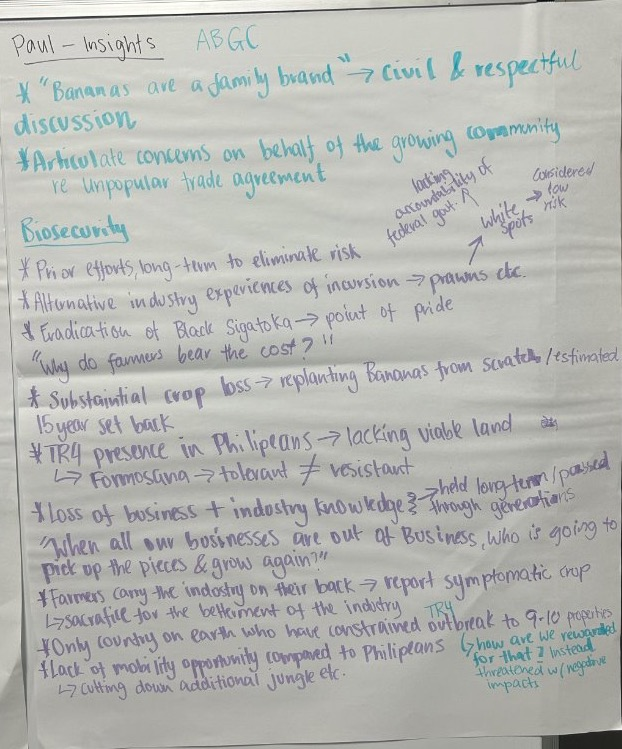 Paul - Insights ABGC
* "Bananas are a family brand" → civil & respectful
discussion
* Articulate concerns on behalf of the growing community
re unpopular trade agreement
lacking
accountability of
federal govt.
White
spots → considered
low
risk
Biosecurity
* Prior efforts, long-term to eliminate risk
* Alternative industry experiences of incursion → prawns etc.
* Eradication of Black Sigatoka → point of pride
"Why do farmers bear the cost?"
* Substaintial crop loss → replanting Bananas from scratch /estimated
15 year set back
* TR4 presence in Philipeans → lacking viable land
↳ Formosana → tolerant ≠ resistant
* Loss of business + industry knowledge } → held long-term/passed
through generations
"When all our businesses are out of Business, who is going to
pick up the pieces & grow again?"
* Farmers carry the industry on their back → report symptomatic crop
↳ sacrafice for the betterment of the industry
* Only country on earth who have constrained TR4 outbreak to 9-10 properties
↳ how are we rewarded
for that? Instead
threatened w/ negative
impacts
* Lack of mobility opportunity compared to Philipeans
↳ Cutting down additional jungle etc.